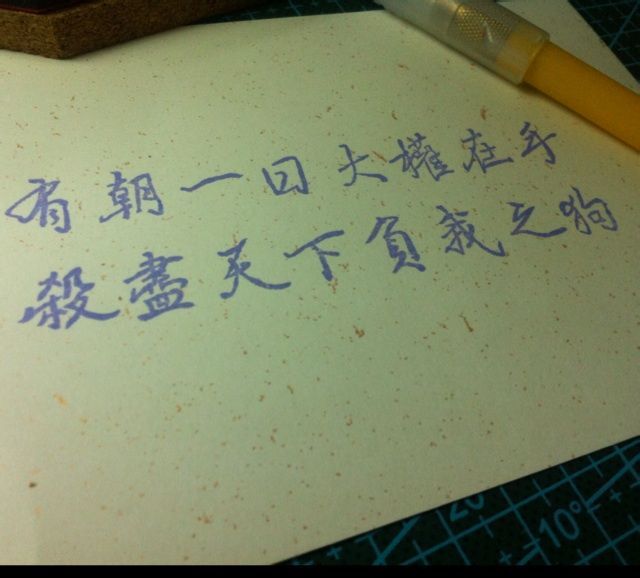 有朝一日大權在手
殺盡天下負我之狗
20
10°